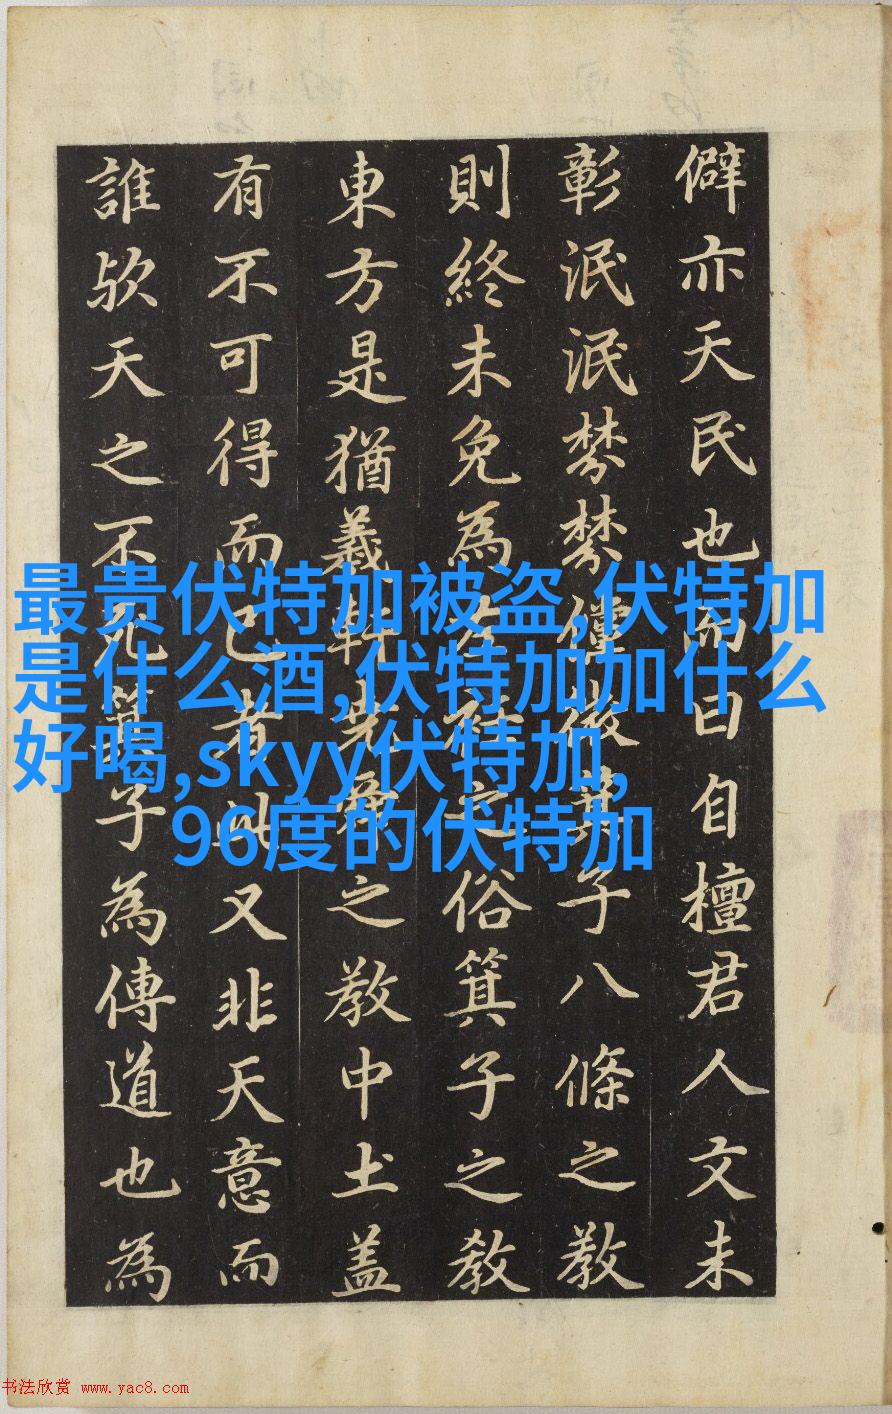 僻亦天民也而曰自檀君人文未
彰泯泯棼棼箕子八條之教
則終未免為左衽之俗箕子之教
東方是猶羲軒堯舜之教中土盖
有不可得而已者此又非天意而
誰欤天之不死箕子為傳道也為
最贵伏特加被盗,伏特加
是什么酒,伏特加加什么
好喝,skyy伏特加,
96度的伏特加
书法欣赏 www.yac8.com